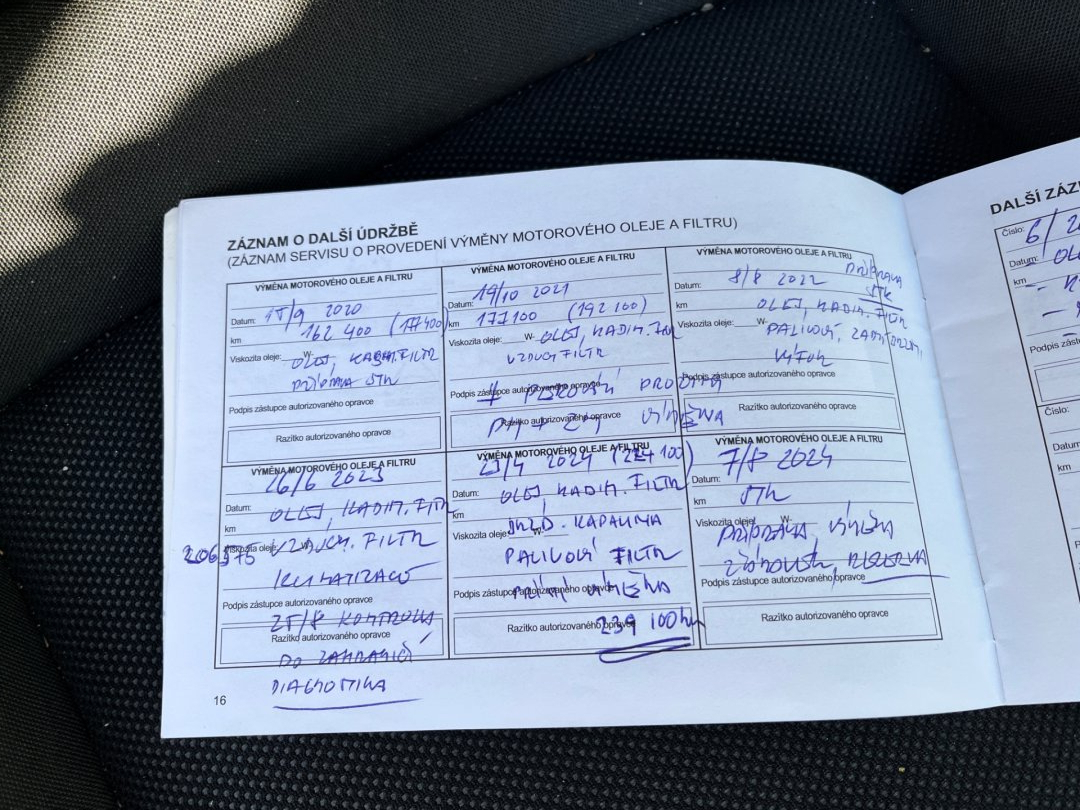 ZÁZNAM O DALŠÍ ÚDRŽBĚ
(ZÁZNAM SERVISU O PROVEDENÍ VÝMĚNY MOTOROVÉHO OLEJE A FILTRU)
VÝMĚNA MOTOROVÉHO OLEJE A FILTRU
15/9 2020
Datum:
162 400
km
Viskozita oleje: W- OLEJ, KABIN. FILTR
PŘÍPRAVA STK
Podpis zástupce autorizovaného opravce
Razítko autorizovaného opravce
VÝMĚNA MOTOROVÉHO OLEJE A FILTRU
19/10 2021
Datum:
km 177100 (192 100)
Viskozita oleje: W- OLEJ, KABIN.
VZDUCH FILTR
Podpis zástupce autorizovaného opravce
Razítko autorizovaného opravce
VÝMĚNA
VÝMĚNA MOTOROVÉHO OLEJE A FILTRU
8/8 2022 PŘÍPRAVA
STK
Datum:
km OLEJ, KABIN. FILTR
Viskozita oleje: W- PALIVOVÝ, ZADNÍ
VÝFUK
Podpis zástupce autorizovaného opravce
Razítko autorizovaného opravce
VÝMĚNA MOTOROVÉHO OLEJE A FILTRU
26/6 2023
Datum:
OLEJ, KABIN. FILTR
km
Viskozita oleje: W- VZDUCH. FILTR
KLIMATIZACE
Podpis zástupce autorizovaného opravce
25/8 KONTROLA
Razítko autorizovaného opravce
DO ZAHRANIČÍ
DIAGNOSTIKA
VÝMĚNA MOTOROVÉHO OLEJE A FILTRU
23/4 2024 (224 100)
Datum: OLEJ, KABIN. FILTR
km
BRZD. KAPALINA
Viskozita oleje: W-
PALIVOVÝ FILTR
Podpis zástupce autorizovaného opravce
VÝMĚNA
Razítko autorizovaného opravce
239 100 km
VÝMĚNA MOTOROVÉHO OLEJE A FILTRU
7/8 2024
Datum:
km STK
Viskozita oleje: W-
PŘÍPRAVA, VÝMĚNA
ŽÁROVEK, REZERVA
Podpis zástupce autorizovaného opravce
Razítko autorizovaného opravce
16
DALŠÍ
Číslo:
6/
Datum:
km
Číslo:
Datum
km